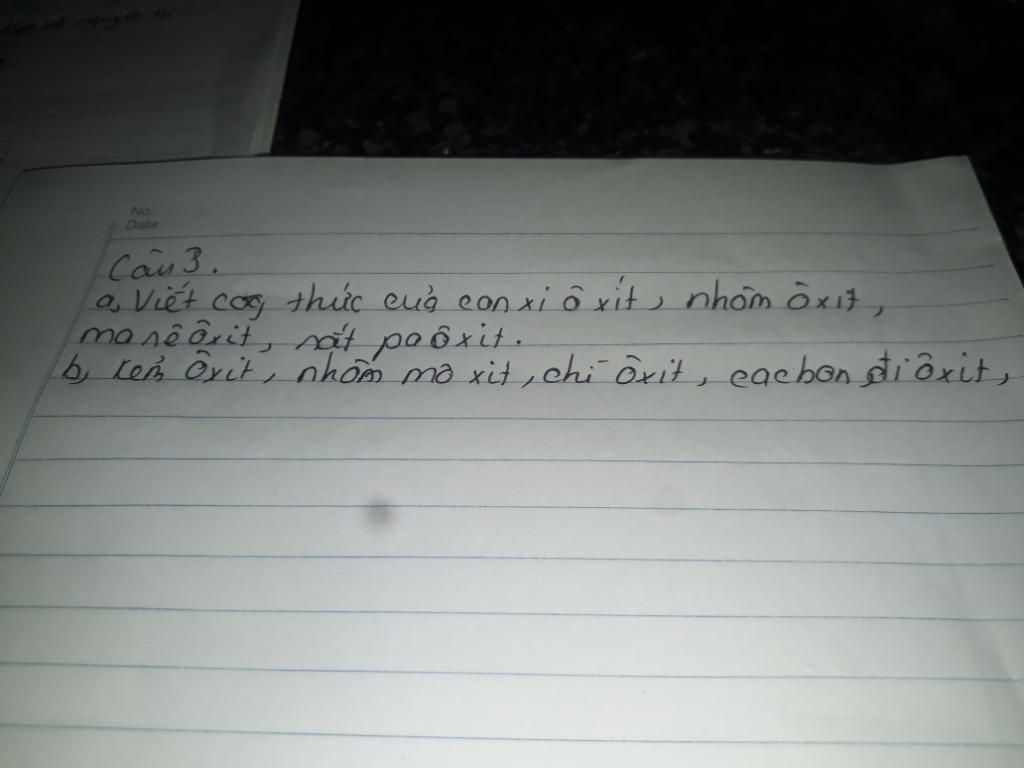 tử và nguyên tử
No.
Date
Câu 3.
a, Viết cog thức của canxi ôxít, nhôm ôxit,
manêôxit, sắt paôxit.
b, kẽm ôxit, nhôm mô xit, chì ôxit, cacbon điôxit,